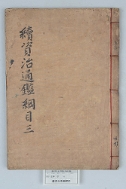 續資治通鑑綱目三